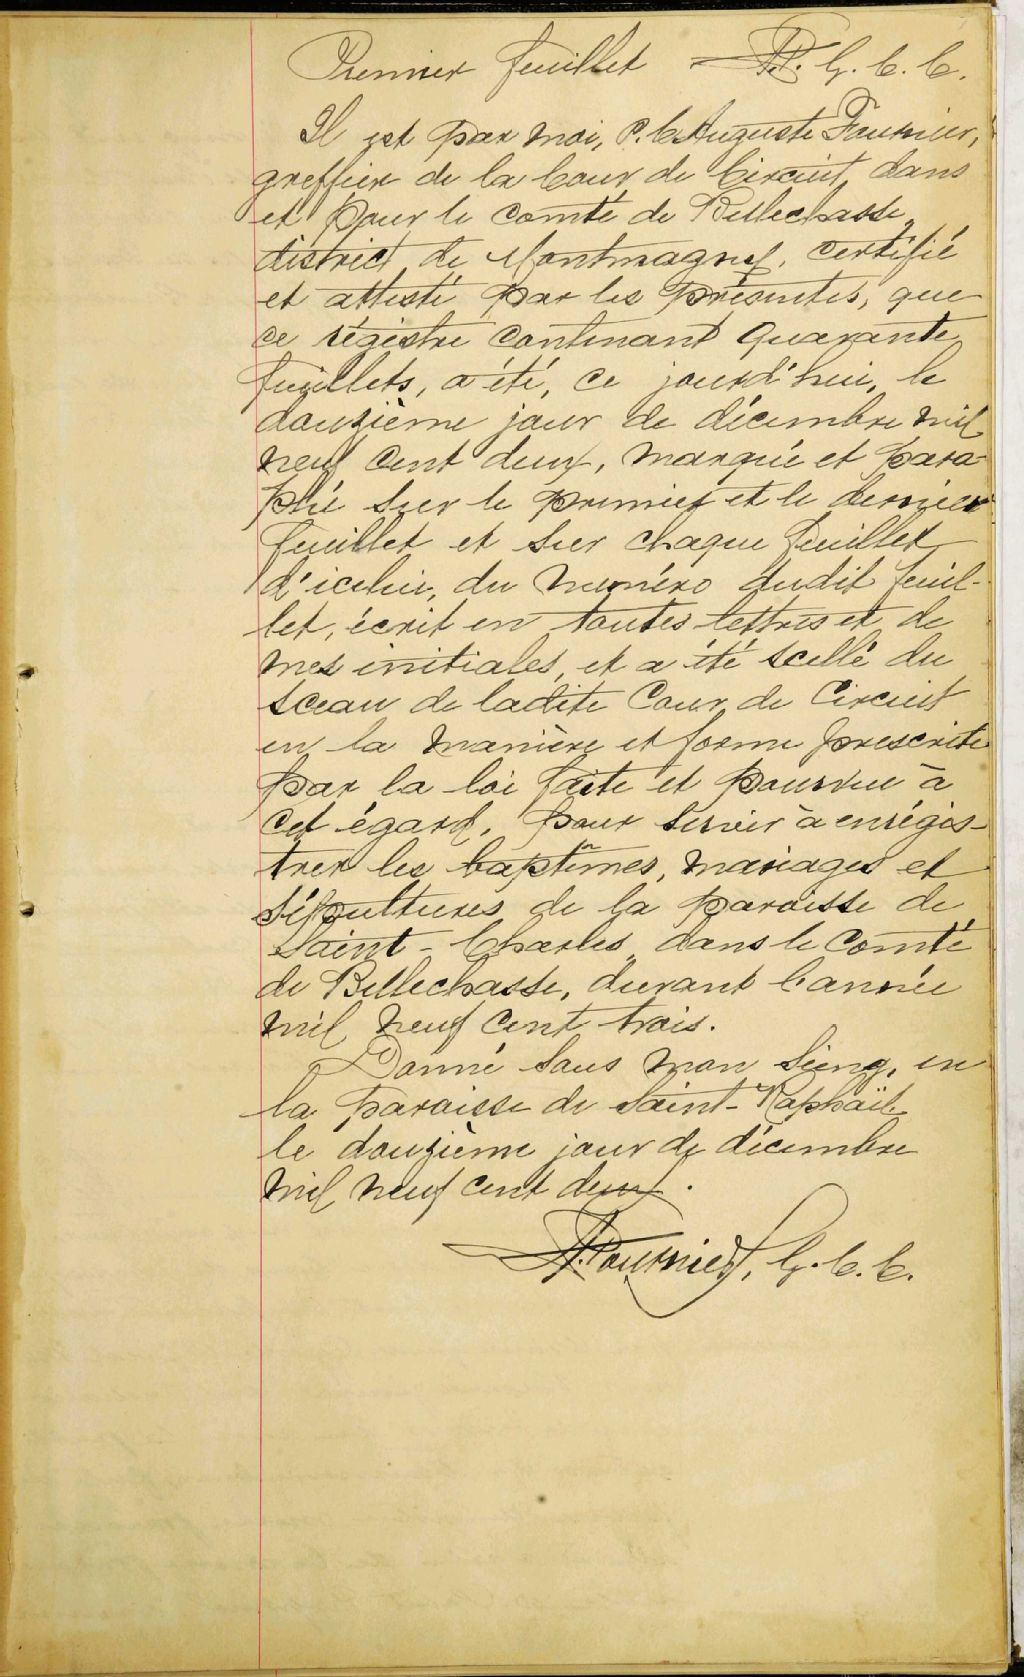 Premier feuillet G. C. C.
Il est par moi, P. C. Auguste Fournier,
greffier de la Cour de Circuit, dans
et pour le comté de Bellechasse,
district de Montmagny, certifié
et attesté par les présentes, que
ce régistre contenant quarante
feuillets, a été, ce jourd'hui, le
douzième jour de décembre mil
neuf cent deux, marqué et para-
phé sur le premier et le dernier
feuillet et sur chaque feuillet
d'icelui, du numéro dudit feuil-
let, écrit en toutes lettres et de
mes initiales, et a été scellé du
sceau de ladite Cour de Circuit
en la manière et forme prescrite
par la loi faite et pourvue à
cet égard, pour servir à enrégis-
trer les baptêmes, mariages et
sépultures de la paroisse de
Saint-Charles, dans le Comté
de Bellechasse, durant l'année
mil neuf cent trois.
Donné sous mon seing, en
la paroisse de Saint-Raphaël,
le douzième jour de décembre
mil neuf cent deux.
Fournier, G. C. C.